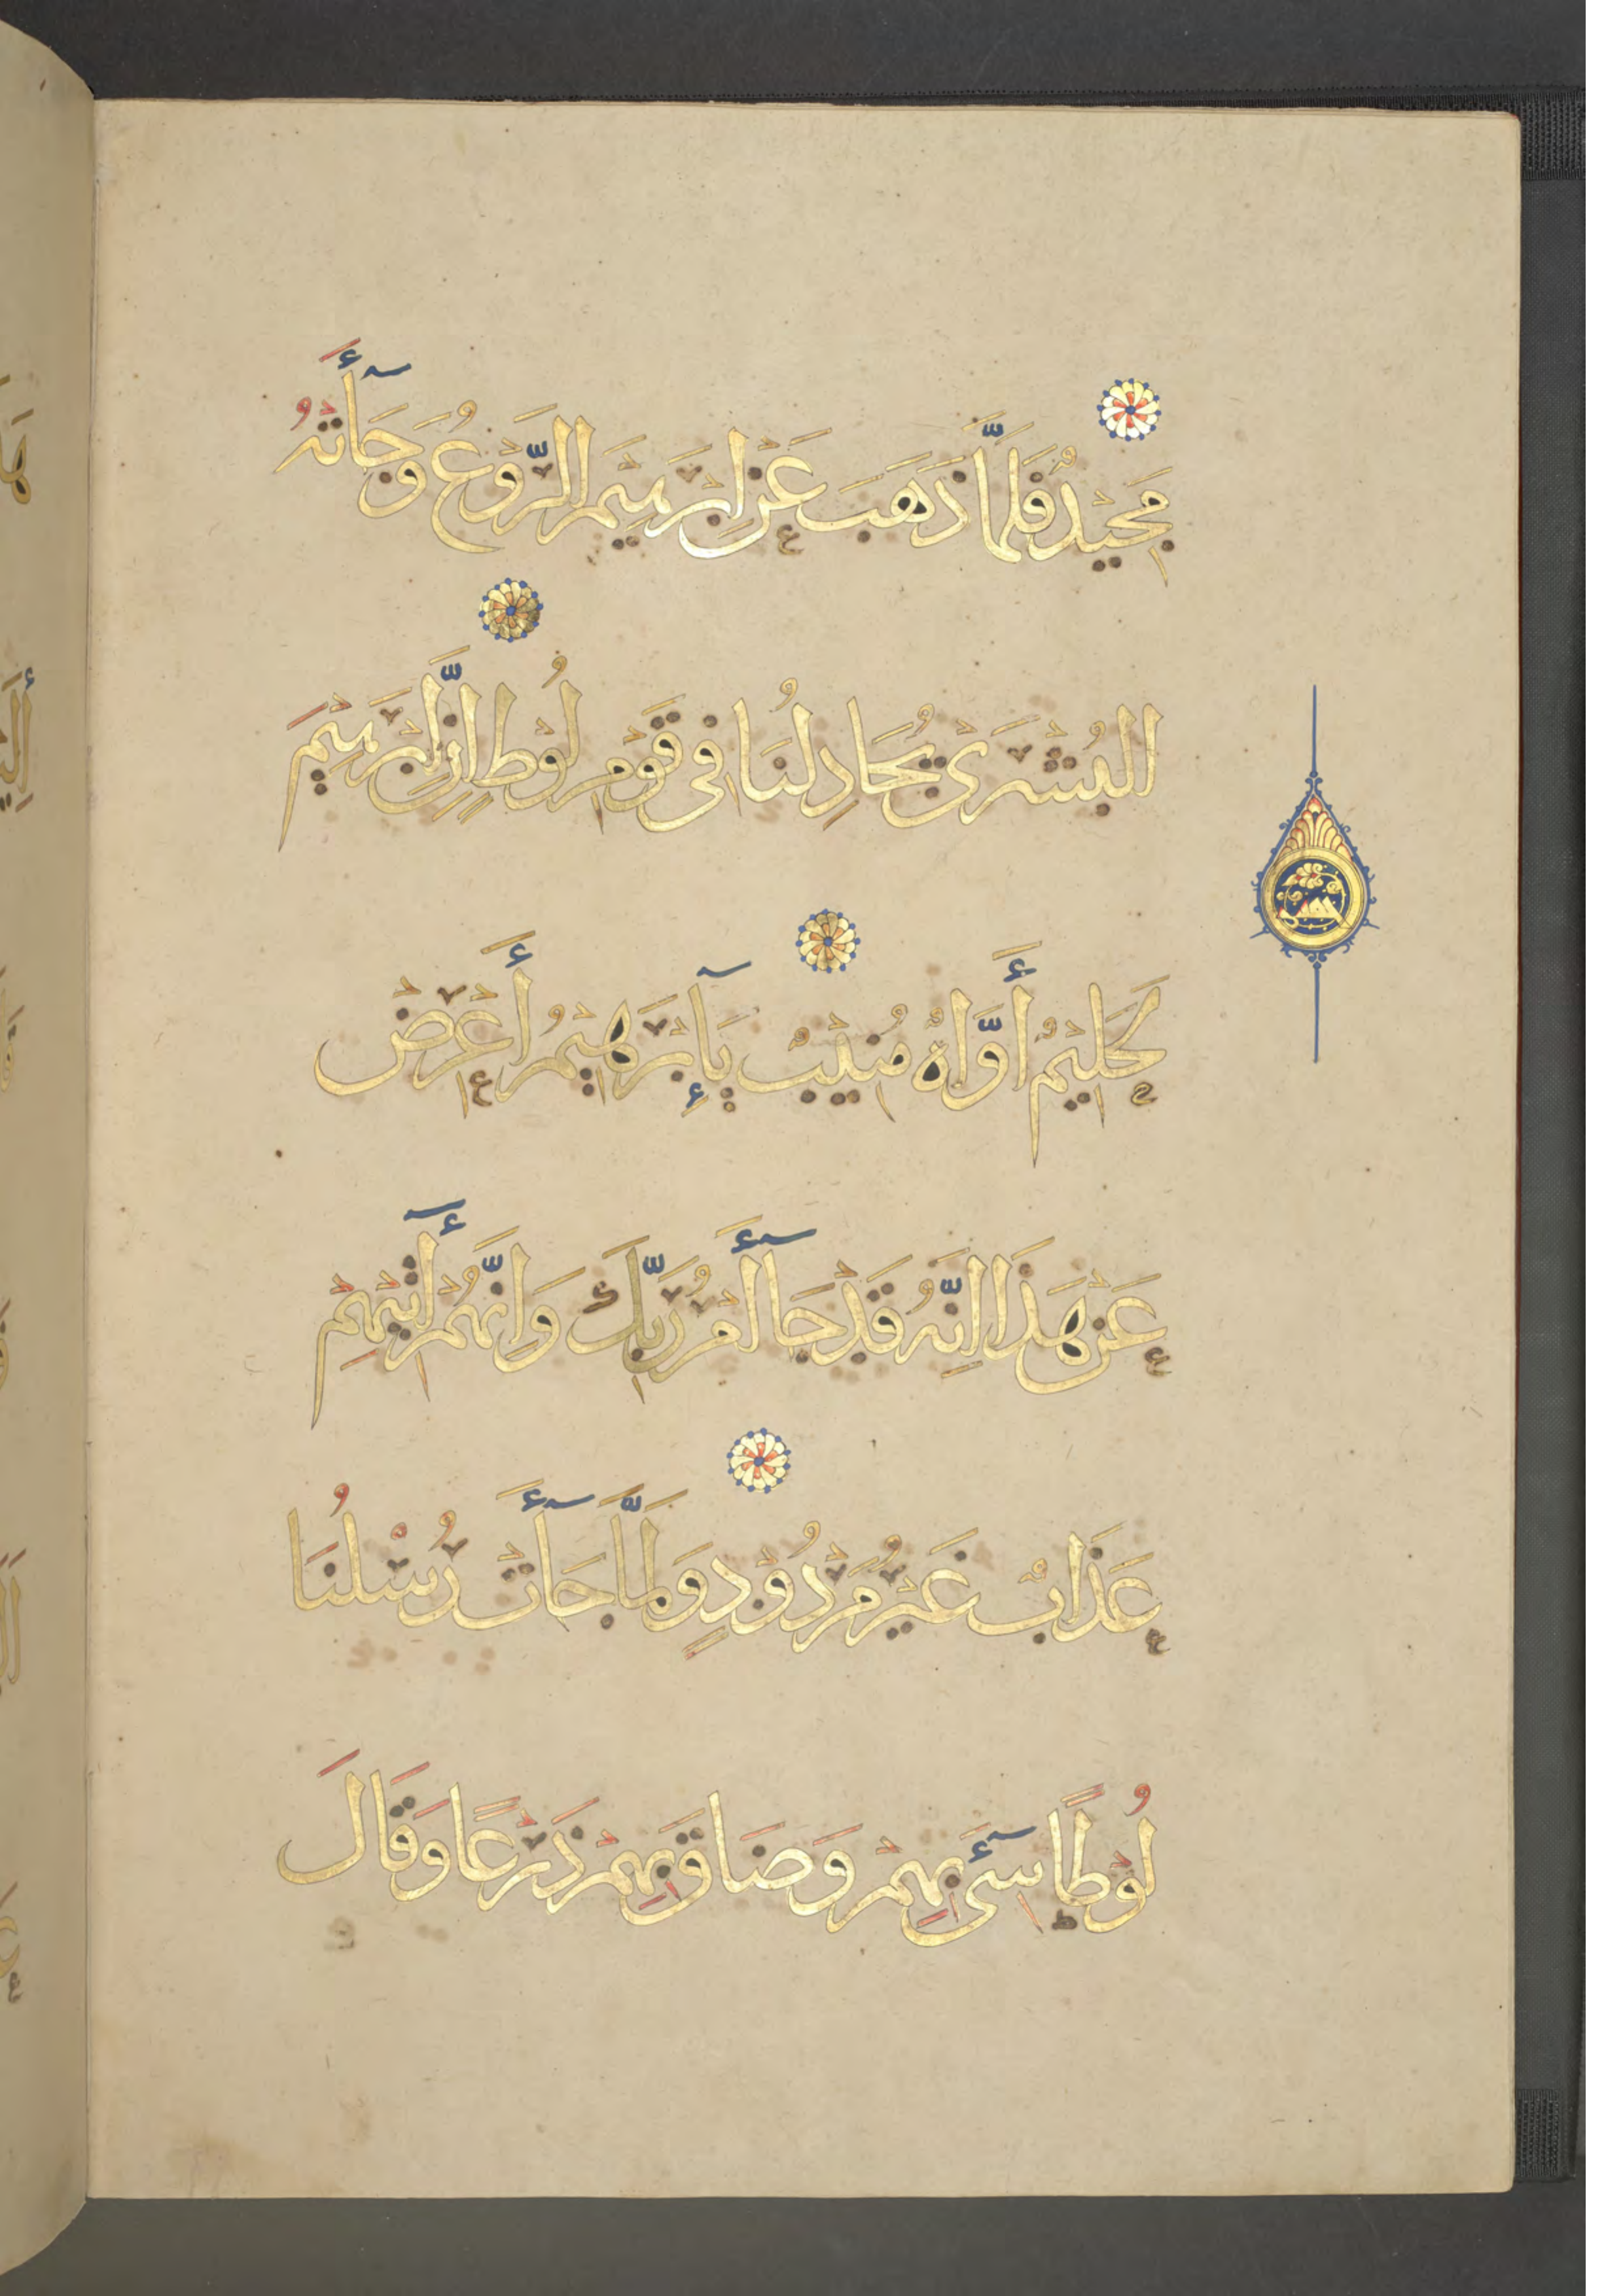 مَجِيْدٌ فَلَمَّا ذَهَبَ عَنْ اِبْرَهِيْمَ الرَّوْعُ وَجَآأَتْهُ
الْبُشْرَىْ يُجَادِلُنَا فِى قَوْمِ لُوْطٍ اِنَّ اِبْرَهِيْمَ
لَحَلِيْمٌ أَوَّاهٌ مُنِيْبٌ يَآإِبْرَهِيْمُ أَعْرِضْ
عَنْ هَذَا اِنَّهُ قَدْ جَآأَ اَمْرُ رَبِّكَ وَاِنَّهُمْ أٓتِيْهِمْ
عَذَابٌ غَيْرُ مَرْدُوْدٍ وَلَمَّا جَآأَتْ رُسُلُنَا
لُوْطًا سِىْٓءَ بِهِمْ وَضَاقَ بِهِمْ ذَرْعًا وَقَالَ